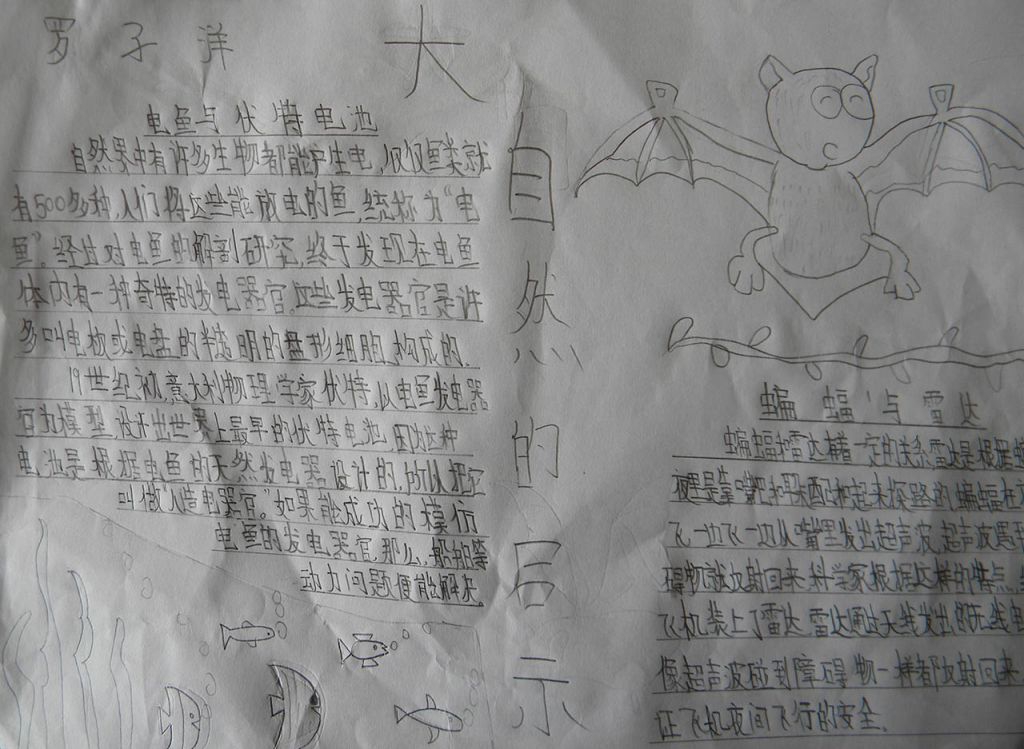 罗子洋
大
自
然
的
启
示
电鱼与伏特电池
自然界中有许多生物都能产生电,仅仅鱼类就
有500多种,人们将这些能放电的鱼,统称为“电
鱼”。经过对电鱼的解剖研究,终于发现在电鱼
体内有一种奇特的发电器官,这些发电器官是许
多叫电板或电盘的半透明的盘形细胞构成的。
19世纪初,意大利物理学家伏特,以电鱼发电器
官为模型,设计出世界上最早的伏特电池,因这种
电池是根据电鱼的天然发电器设计的,所以把它
叫做“人造电器官。”如果能成功的模仿
电鱼的发电器官,那么,船舶等
动力问题便能解决。
蝙蝠与雷达
蝙蝠和雷达有着一定的关系雷达是根据蝙
夜里是靠嘴把和耳朵配合起来探路的蝙蝠在
飞,一边飞一边从嘴里发出超声波,超声波遇到
碍物就反射回来,科学家根据这样的特点,
飞机装上了雷达,雷达通过天线发出的无线电
像超声波碰到障碍物一样都反射回来
证飞机夜间飞行的安全。